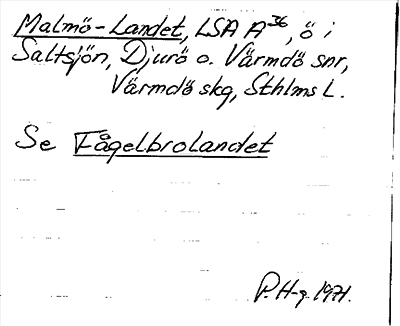 Malmö-Landet, LSA A36, ö i
Saltsjön, Djurö o. Värmdö snr,
Värmdö skg, Sthlms L.
Se Fågelbrolandet
P. H-g. 1971.